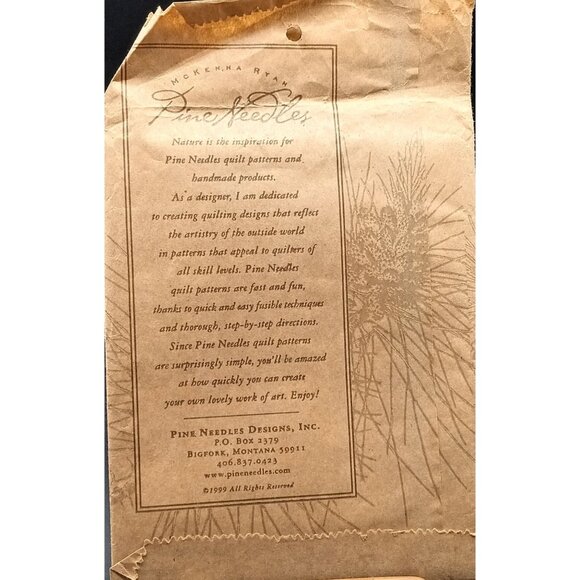 McKenna Ryan
Pine Needles
Nature is the inspiration for
Pine Needles quilt patterns and
handmade products.
As a designer, I am dedicated
to creating quilting designs that reflect
the artistry of the outside world
in patterns that appeal to quilters of
all skill levels. Pine Needles
quilt patterns are fast and fun,
thanks to quick and easy fusible techniques
and thorough, step-by-step directions.
Since Pine Needles quilt patterns
are surprisingly simple, you'll be amazed
at how quickly you can create
your own lovely work of art. Enjoy!
Pine Needles Designs, Inc.
P.O. Box 2379
Bigfork, Montana 59911
406.837.0423
www.pineneedles.com
©1999 All Rights Reserved